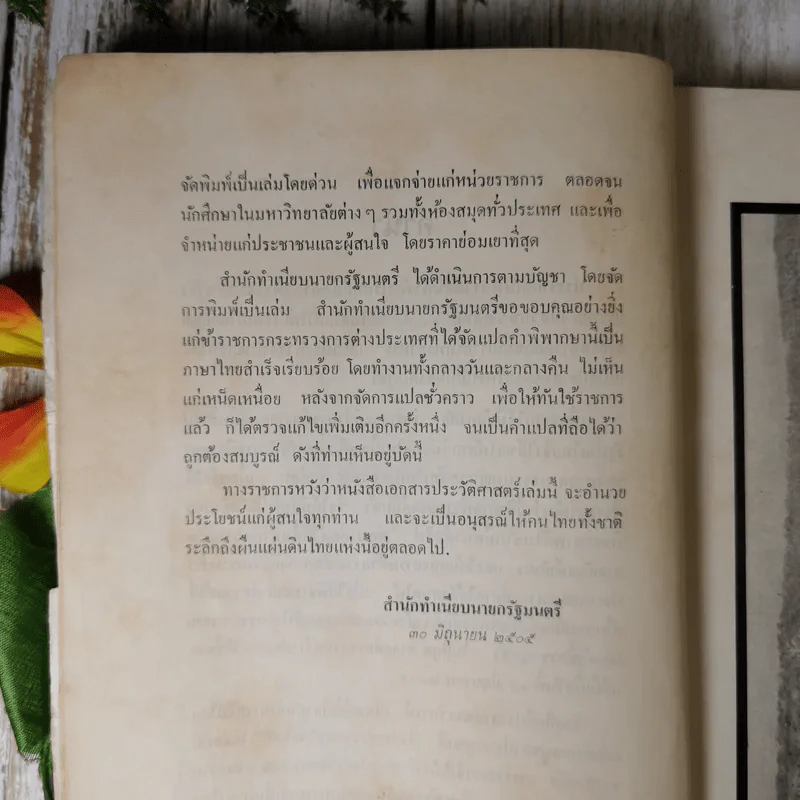 จัดพิมพ์เป็นเล่มโดยด่วน เพื่อแจกจ่ายแก่หน่วยราชการ ตลอดจน
นักศึกษาในมหาวิทยาลัยต่าง ๆ รวมทั้งห้องสมุดทั่วประเทศ และเพื่อ
จำหน่ายแก่ประชาชนและผู้สนใจ โดยราคาย่อมเยาที่สุด
สำนักทำเนียบนายกรัฐมนตรี ได้ดำเนินการตามบัญชา โดยจัด
การพิมพ์เป็นเล่ม สำนักทำเนียบนายกรัฐมนตรีขอขอบคุณอย่างยิ่ง
แก่ข้าราชการกระทรวงการต่างประเทศที่ได้จัดแปลคำพิพากษานี้เป็น
ภาษาไทยสำเร็จเรียบร้อย โดยทำงานทั้งกลางวันและกลางคืน ไม่เห็น
แก่เหน็ดเหนื่อย หลังจากจัดการแปลชั่วคราว เพื่อให้ทันใช้ราชการ
แล้ว ก็ได้ตรวจแก้ไขเพิ่มเติมอีกครั้งหนึ่ง จนเป็นคำแปลที่ถือได้ว่า
ถูกต้องสมบูรณ์ ดังที่ท่านเห็นอยู่บัดนี้
ทางราชการหวังว่าหนังสือเอกสารประวัติศาสตร์เล่มนี้ จะอำนวย
ประโยชน์แก่ผู้สนใจทุกท่าน และจะเป็นอนุสรณ์ให้คนไทยทั้งชาติ
ระลึกถึงผืนแผ่นดินไทยแห่งนี้อยู่ตลอดไป.
สำนักทำเนียบนายกรัฐมนตรี
๓๐ มิถุนายน ๒๕๐๕